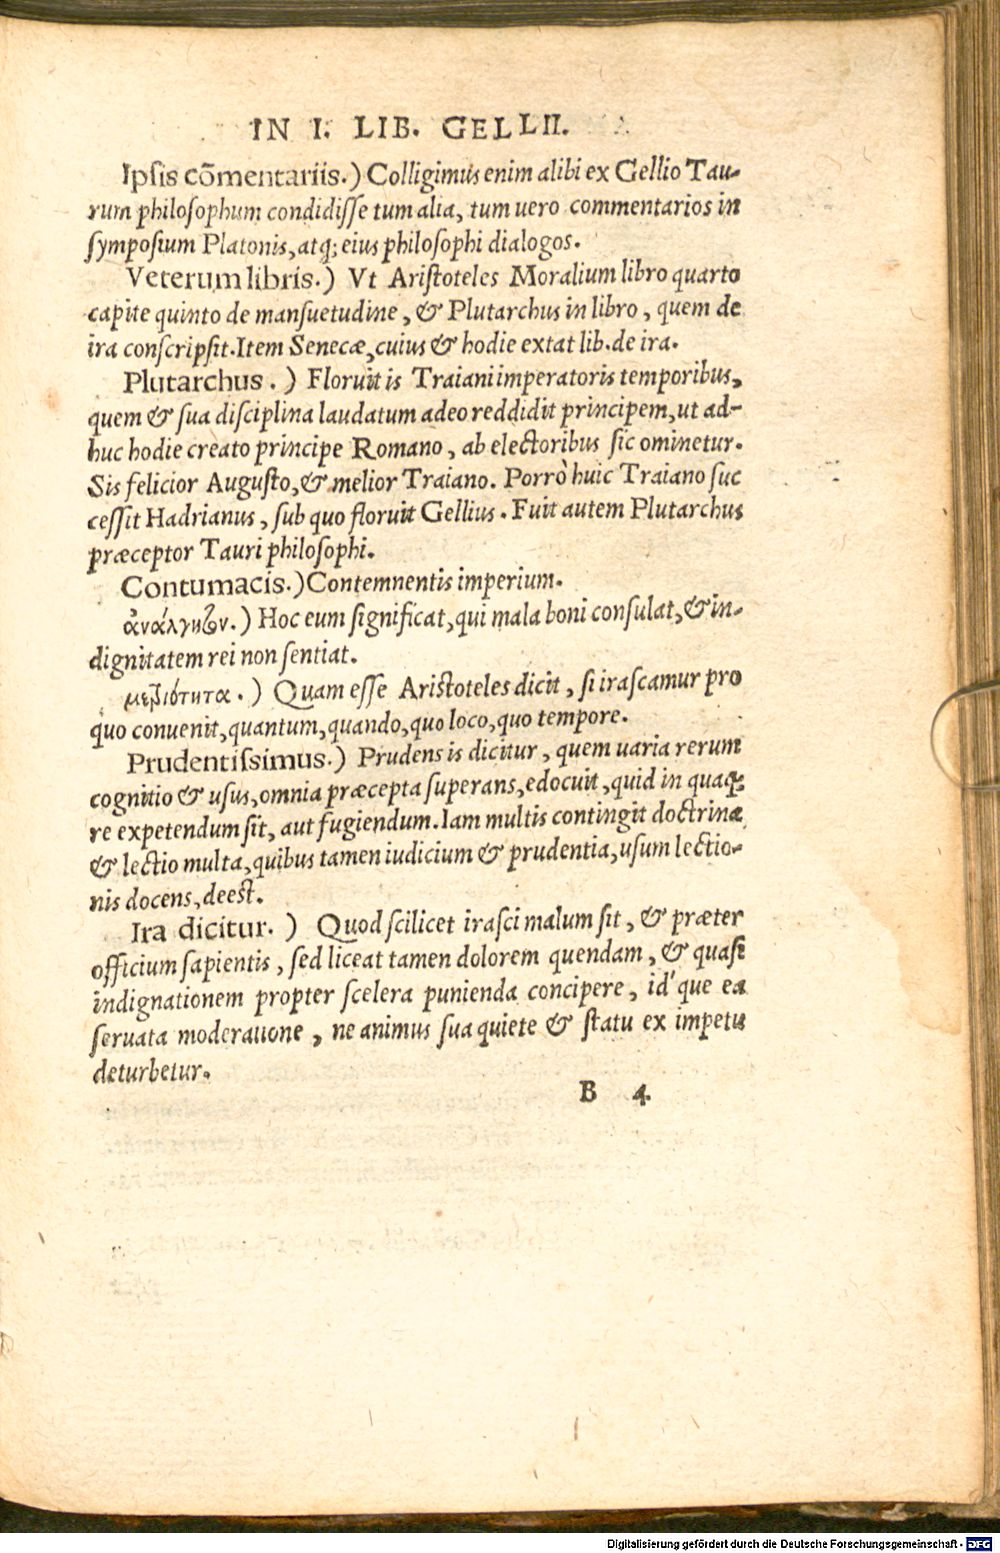 IN I. LIB. GELLII.
Ipsis cõmentariis.) Colligimus enim alibi ex Gellio Tau-
rum philosophum condidisse tum alia, tum uero commentarios in
symposium Platonis, atq; eius philosophi dialogos.
Veterum libris.) Vt Aristoteles Moralium libro quarto
capite quinto de mansuetudine, & Plutarchus in libro, quem de
ira conscripsit. Item Senecæ, cuius & hodie extat lib. de ira.
Plutarchus.) Floruit is Traiani imperatoris temporibus,
quem & sua disciplina laudatum adeo reddidit principem, ut ad-
huc hodie creato principe Romano, ab electoribus sic ominetur.
Sis felicior Augusto, & melior Traiano. Porrò huic Traiano suc
cessit Hadrianus, sub quo floruit Gellius. Fuit autem Plutarchus
præceptor Tauri philosophi.
Contumacis.) Contemnentis imperium.
ἀνάλγητον.) Hoc eum significat, qui mala boni consulat, & in-
dignitatem rei non sentiat.
μετριότητα.) Quam esse Aristoteles dicit, si irascamur pro
quo conuenit, quantum, quando, quo loco, quo tempore.
Prudentissimus.) Prudens is dicitur, quem uaria rerum
cognitio & usus, omnia præcepta superans, edocuit, quid in quaq;
re expetendum sit, aut fugiendum. Iam multis contingit doctrina
& lectio multa, quibus tamen iudicium & prudentia, usum lectio-
nis docens, deest.
Ira dicitur.) Quod scilicet irasci malum sit, & præter
officium sapientis, sed liceat tamen dolorem quendam, & quasi
indignationem propter scelera punienda concipere, id que ea
seruata moderatione, ne animus sua quiete & statu ex impetu
deturbetur.
B 4.
Digitalisierung gefördert durch die Deutsche Forschungsgemeinschaft - DFG